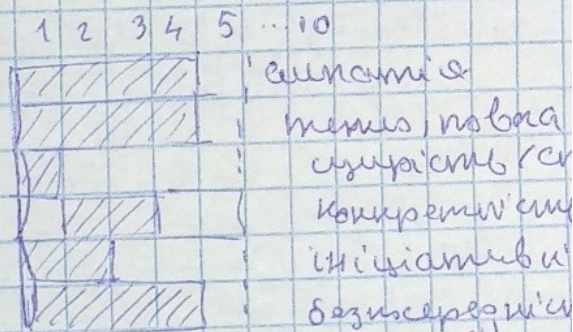 1 2 3 4 5 ... 10
емпатія
тепло / повага
щирість / сп
конкретніст
ініціативні
безпосередніс